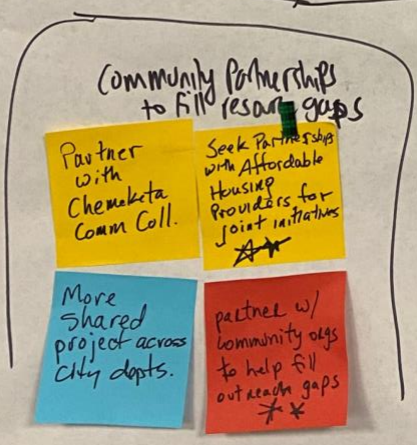 Community Partnerships
to fill resour gaps
Partner
with
Chemeketa
Comm Coll.
Seek Partnerships
with Affordable
Housing
Providers for
joint initiatives
More
Shared
project across
City depts.
partner w/
community orgs
to help fill
outreach gaps